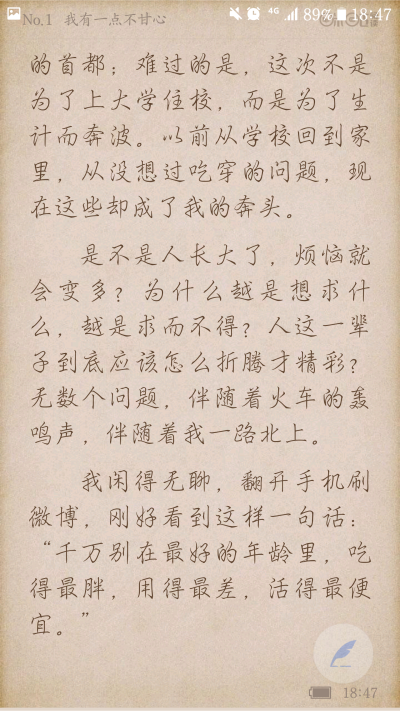 No.1 我有一点不甘心
4G 89% 18:47
的首都；难过的是，这次不是
为了上大学住校，而是为了生
计而奔波。以前从学校回到家
里，从没想过吃穿的问题，现
在这些却成了我的奔头。
是不是人长大了，烦恼就
会变多？为什么越是想求什
么，越是求而不得？人这一辈
子到底应该怎么折腾才精彩？
无数个问题，伴随着火车的轰
鸣声，伴随着我一路北上。
我闲得无聊，翻开手机刷
微博，刚好看到这样一句话：
“千万别在最好的年龄里，吃
得最胖，用得最差，活得最便
宜。”
18:47